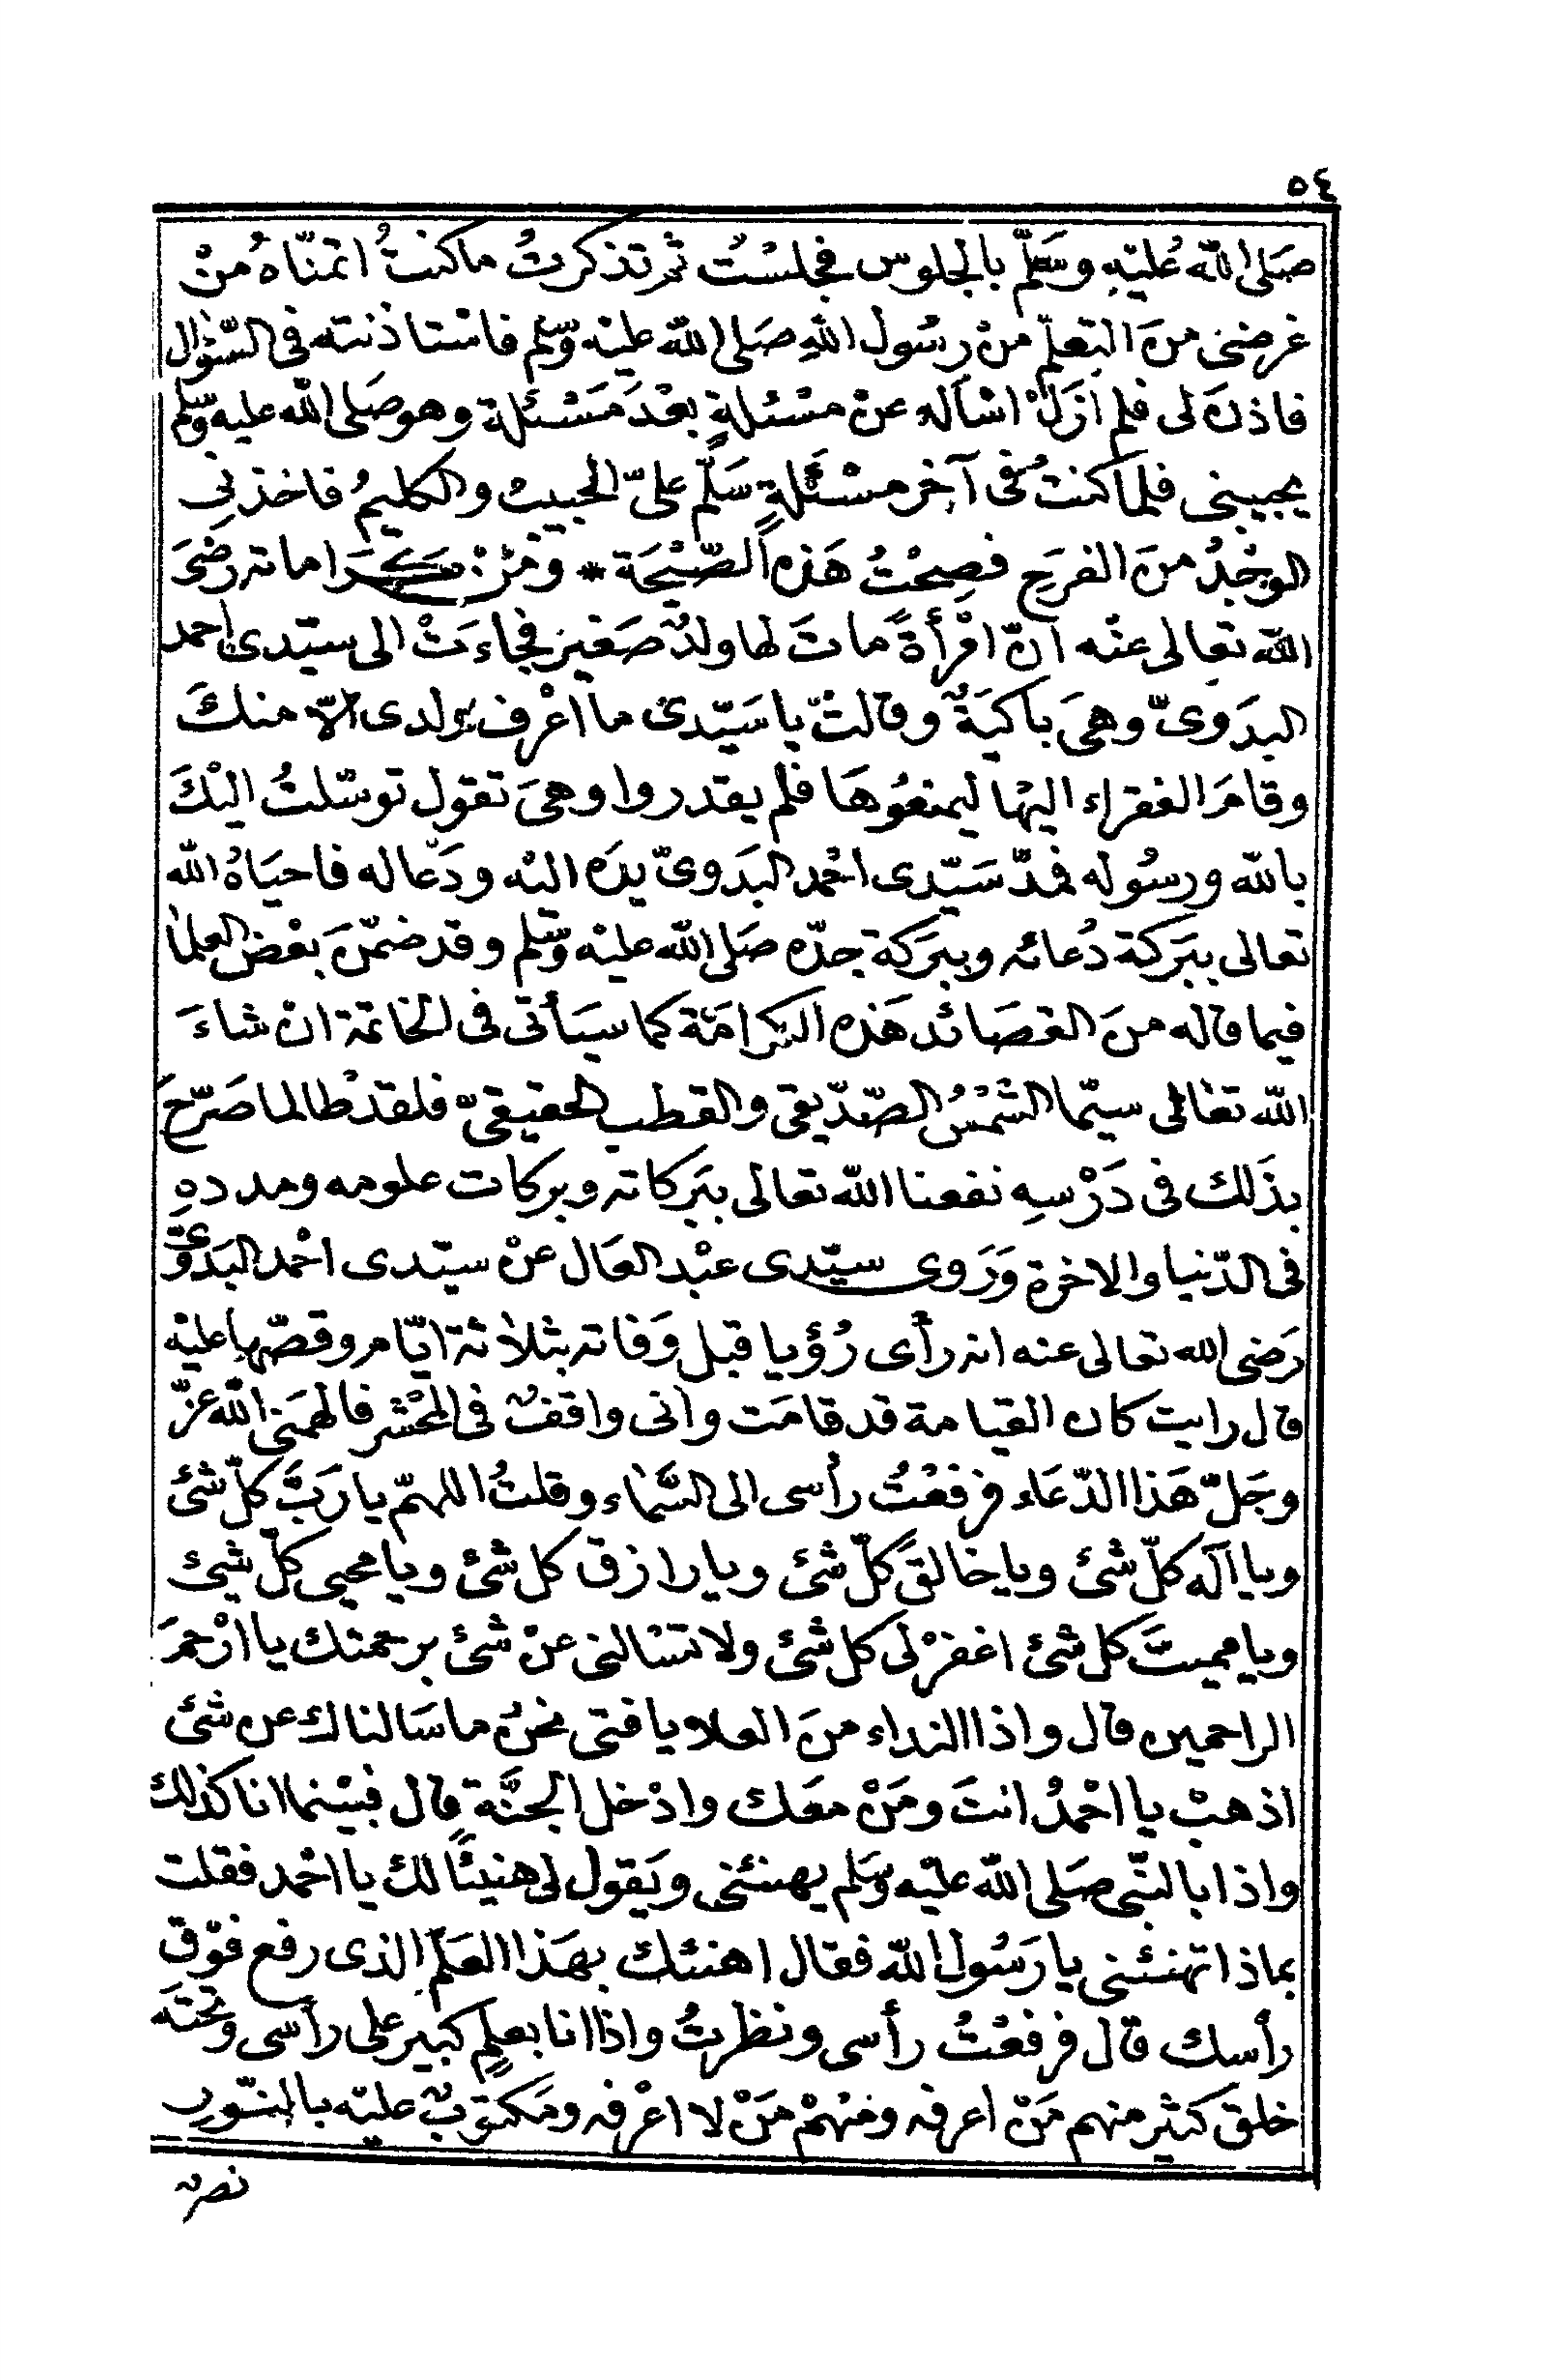 ٥٤
صَلى الله عَليْهِ وسَلّم بالجلوس فجلسْتُ ثم تذكرتُ ما كنتُ اتمنّاهُ منْ
غرضى منَ التعلّم منْ رسُول اللهِ صَلى الله عليْه وسّلم فاسْتاذنته فى السّؤال
فاذنَ لى فلم ازَلْ اسْأله عنْ مسْئلةٍ بعْدَ مَسْئلة وهو صَلى الله عليه وسّلم
يجيبنى فلما كنتُ فى آخِر مسْئَلةٍ سَلّم علىّ الحبيبُ والكليمُ فاخذنِى
الوجْدُ منَ الفرَح فصِحْتُ هَذه الصّيْحَة * ومنْ كَرَاماته رضىَ
الله تعالى عنْه انّ امْرأةً ماتَ لها ولدٌ صَغير فجاءَتْ الى سيّدى احمد
البدَوىّ وهىَ باكيَةٌ وقالتْ يا سَيّدى ما اعْرف ولدى الاّ منكَ
وقامَ الفقراء اليْها ليمنعُوهَا فلم يقدروا وهىَ تقول توسّلتُ اليْكَ
بالله ورسُوله فمدّ سَيّدى احْمد البَدَوىّ يدَه اليْه ودَعا له فاحيَاهُ الله
تعالى ببَركة دُعائه وببَركة جدّه صَلى الله عليْه وسّلم وقد ضمّنَ بعْض العلماء
فيما قاله منَ القصَائد هَذه الكرامَة كما سيَأتى فى الخاتمة انْ شاءَ
الله تعَالى سيّما الشمْسُ الصّدّيقى والقطب الحقيقىّ فلقدْ طالما صَرّحَ
بذَلك فى دَرْسِه نفعنا الله تعالى ببَركاته وبركات علومه ومددهِ
فى الدّنيا والاخرة وَرَوى سيّدى عبْد العَال عنْ سيّدى احْمد البَدَوىّ
رَضى الله تعالى عنه انه رأى رُؤيا قبل وَفاته بثلاثة ايّام وقصّها عليْه
قال رايت كان القيامة قد قامَت وانى واقفٌ فى المحْشر فالهمَنى الله عزّ
وجَلّ هَذا الدّعَاء فرفعْتُ رأسى الى السَّمَاء وقلتُ اللهمّ يا رَبَّ كلّ شئ
ويا اله كلّ شئ ويا خالقَ كلّ شئ ويا رازق كل شئ ويا محيى كلّ شيئ
ويا مميتَ كل شئ اغفرْ لى كل شئ ولا تسْالنى عنْ شئ برحمتك يا ارْحمَ
الراحمين قال واذا النداء منَ العلا يا فتى نحنُ ما سَالناك عن شئ
اذهبْ يا احْمدُ انتَ ومَنْ معَك وادْخل الجنَّة قال فبيْنما انا كذلك
واذا بالنّبى صَلى الله عليْه وسَلم يهنئنى ويَقول لى هنيئًا لك يا احْمد فقلت
بماذا تهنئنى يا رَسُول الله فقال اهنئك بهَذا العَلَم الذى رفع فوْق
رأسك قال فرفعْتُ رأسى ونظرتُ واذا انا بعلمٍ كبير على رأسى وتحتَه
خلق كثير منهم مَنْ اعرفه ومنهمْ مَنْ لا اعْرفه ومَكتوبٌ عليْه بالنّورِ
نصر